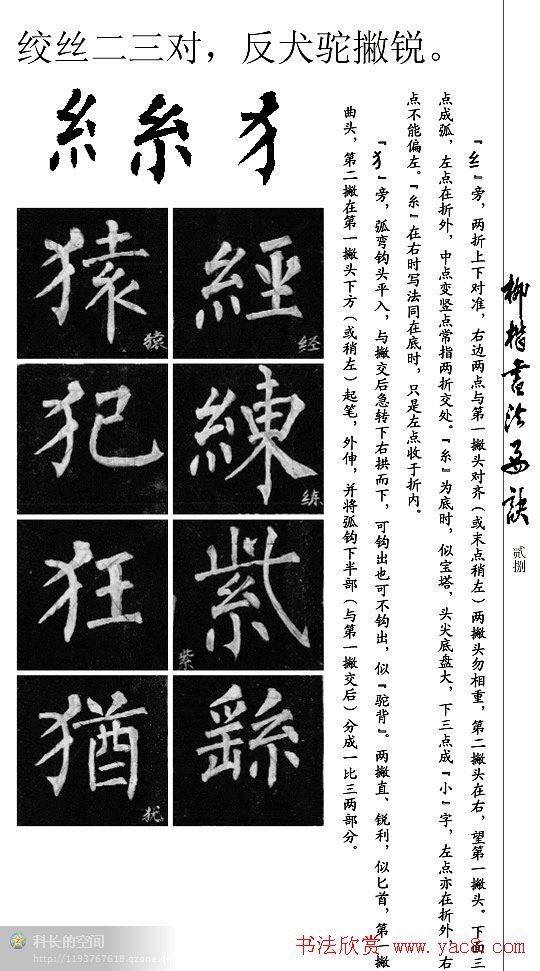 绞丝二三对，反犬驼撇锐。
糹 糸 犭
猿 經
猿 经
犯 練
练
狂 紫
紫
猶 繇
犹
『纟』旁，两折上下对准，右边两点与第一撇头对齐（或末点稍左）两撇头勿相重，第二撇头在右，望第一撇头。下面三
点成弧，左点在折外，中点变竖点常指两折交处。『糸』为底时，似宝塔，头尖底盘大，下三点成『小』字，左点亦在折外，右
点不能偏左。『糸』在右时写法同在底时，只是左点收于折内。
『犭』旁，弧弯钩头平入，与撇交后急转下右拱而下，可钩出也可不钩出，似『驼背』。两撇直、锐利，似匕首，第一撇
曲头，第二撇在第一撇头下方（或稍左）起笔，外伸，并将弧钩下半部（与第一撇交后）分成一比三两部分。
柳楷书法要诀
贰捌
科长的空间
http://1193767618.qzone.qq
书法欣赏 www.yac8.com